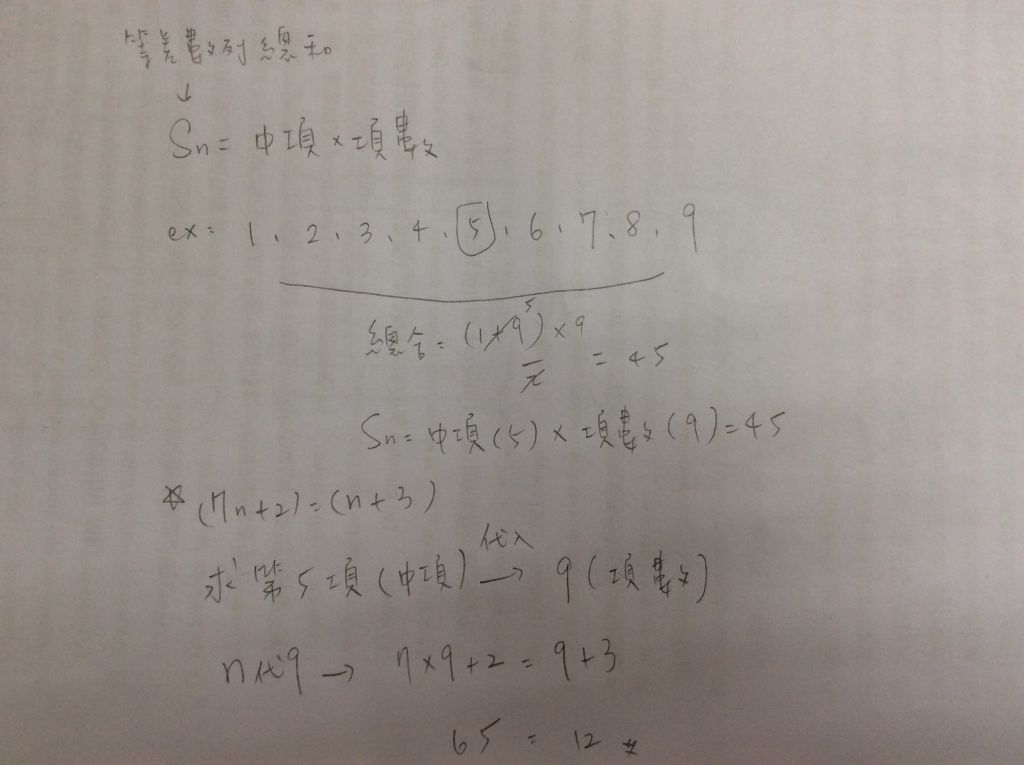 等差數列總和
↓
Sn = 中項 × 項數
ex: 1、2、3、4、5、6、7、8、9
總合 = (1+9)⁵ × 9 / 2 = 45
Sn = 中項(5) × 項數(9) = 45
☆ (7n+2) = (n+3)
求第5項(中項) 代入→ 9(項數)
n代9 → 7×9+2 = 9+3
65 = 12 #